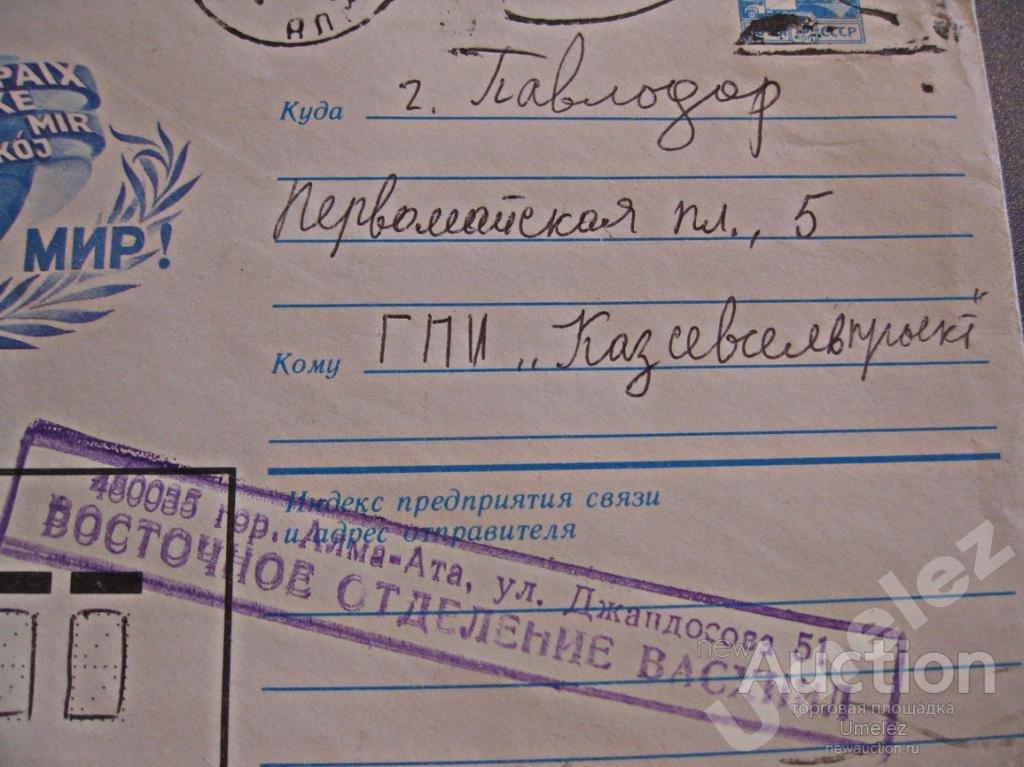 PAIX
MIR
МИР!
СССР
Куда г. Павлодар
Первомайская пл., 5
Кому ГПИ „Казсевсельпроект"
Индекс предприятия связи
и адрес отправителя
480035 гор. Алма-Ата, ул. Джандосова 51
ВОСТОЧНОЕ ОТДЕЛЕНИЕ ВАСХНИЛ
newAuction
торговая площадка
Umelez
newauction.ru
Umelez